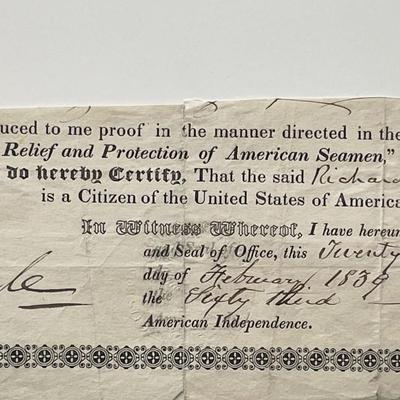 uced to me proof in the manner directed in the
Relief and Protection of American Seamen,"
do hereby Certify, That the said Richard
is a Citizen of the United States of America
In Witness Whereof, I have hereun
and Seal of Office, this Twenty
day of February 1839
the Sixty third
American Independence.